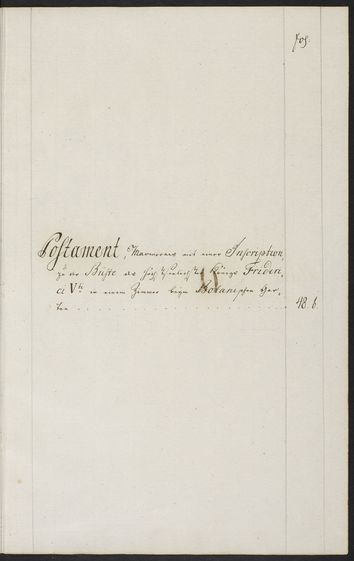 Postament, Marmornes mit einer Inscription,
zu der Büste des Königs Frideri,
ci Vti in einem Zimmer beym Botanischen Gar,
ten . . . . . . . . . . . . . . . . . . . . . . . 48. b.